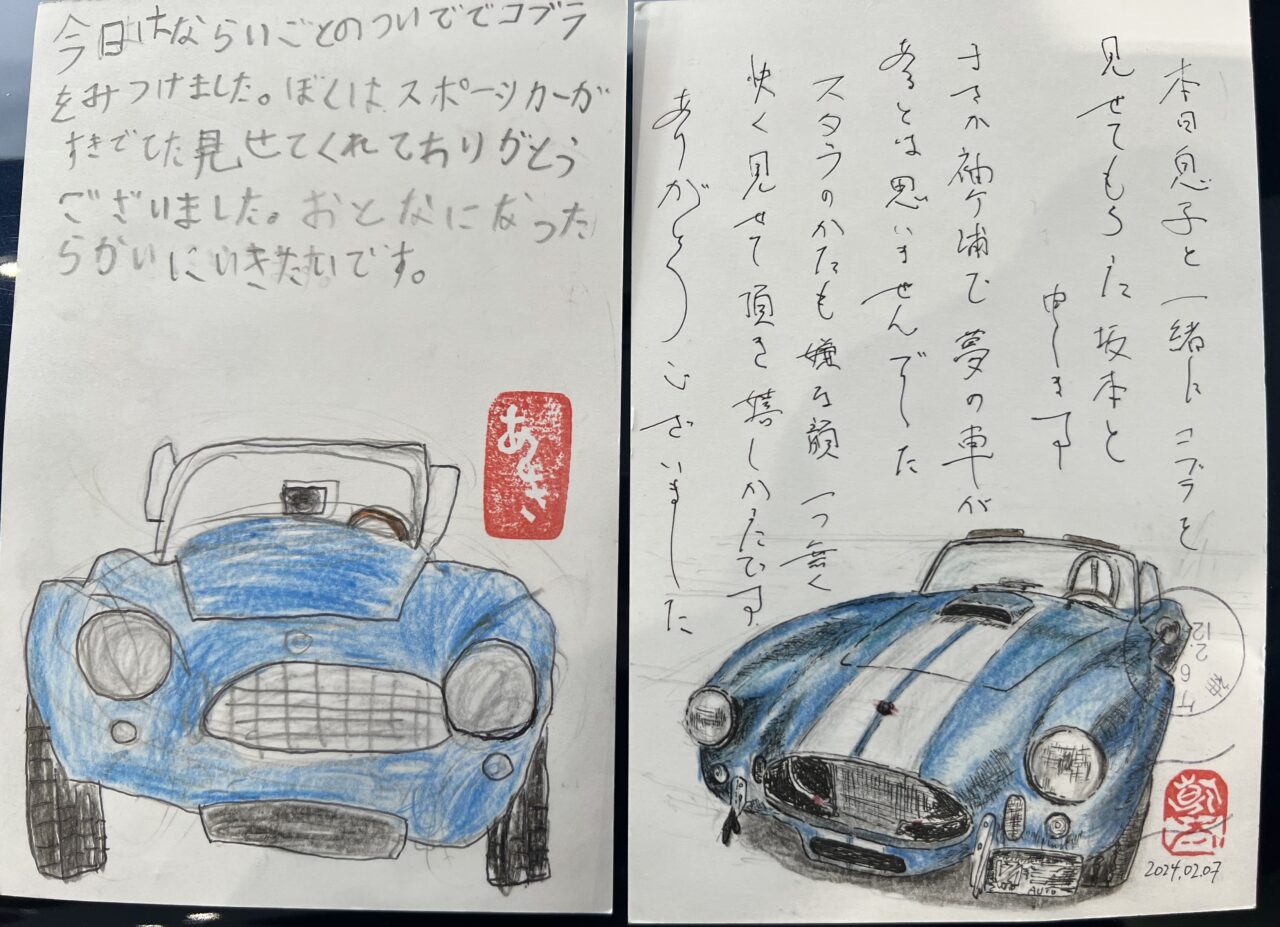 今日はならいごとのついででコブラ
をみつけました。ぼくはスポーツカーが
すきでてた見せてくれておりがとう
ございました。おとなになった
らかいにいきたいです。
あきさ
本日息子と一緒にコブラを
見せてもらった坂本と
申します
まさか袖ケ浦で夢の車が
あるとは思いませんでした
スタッフのかたも嫌な顔一つ無く
快く見せて頂き嬉しかったです
ありがとうございました
AUTO
2024.02.07